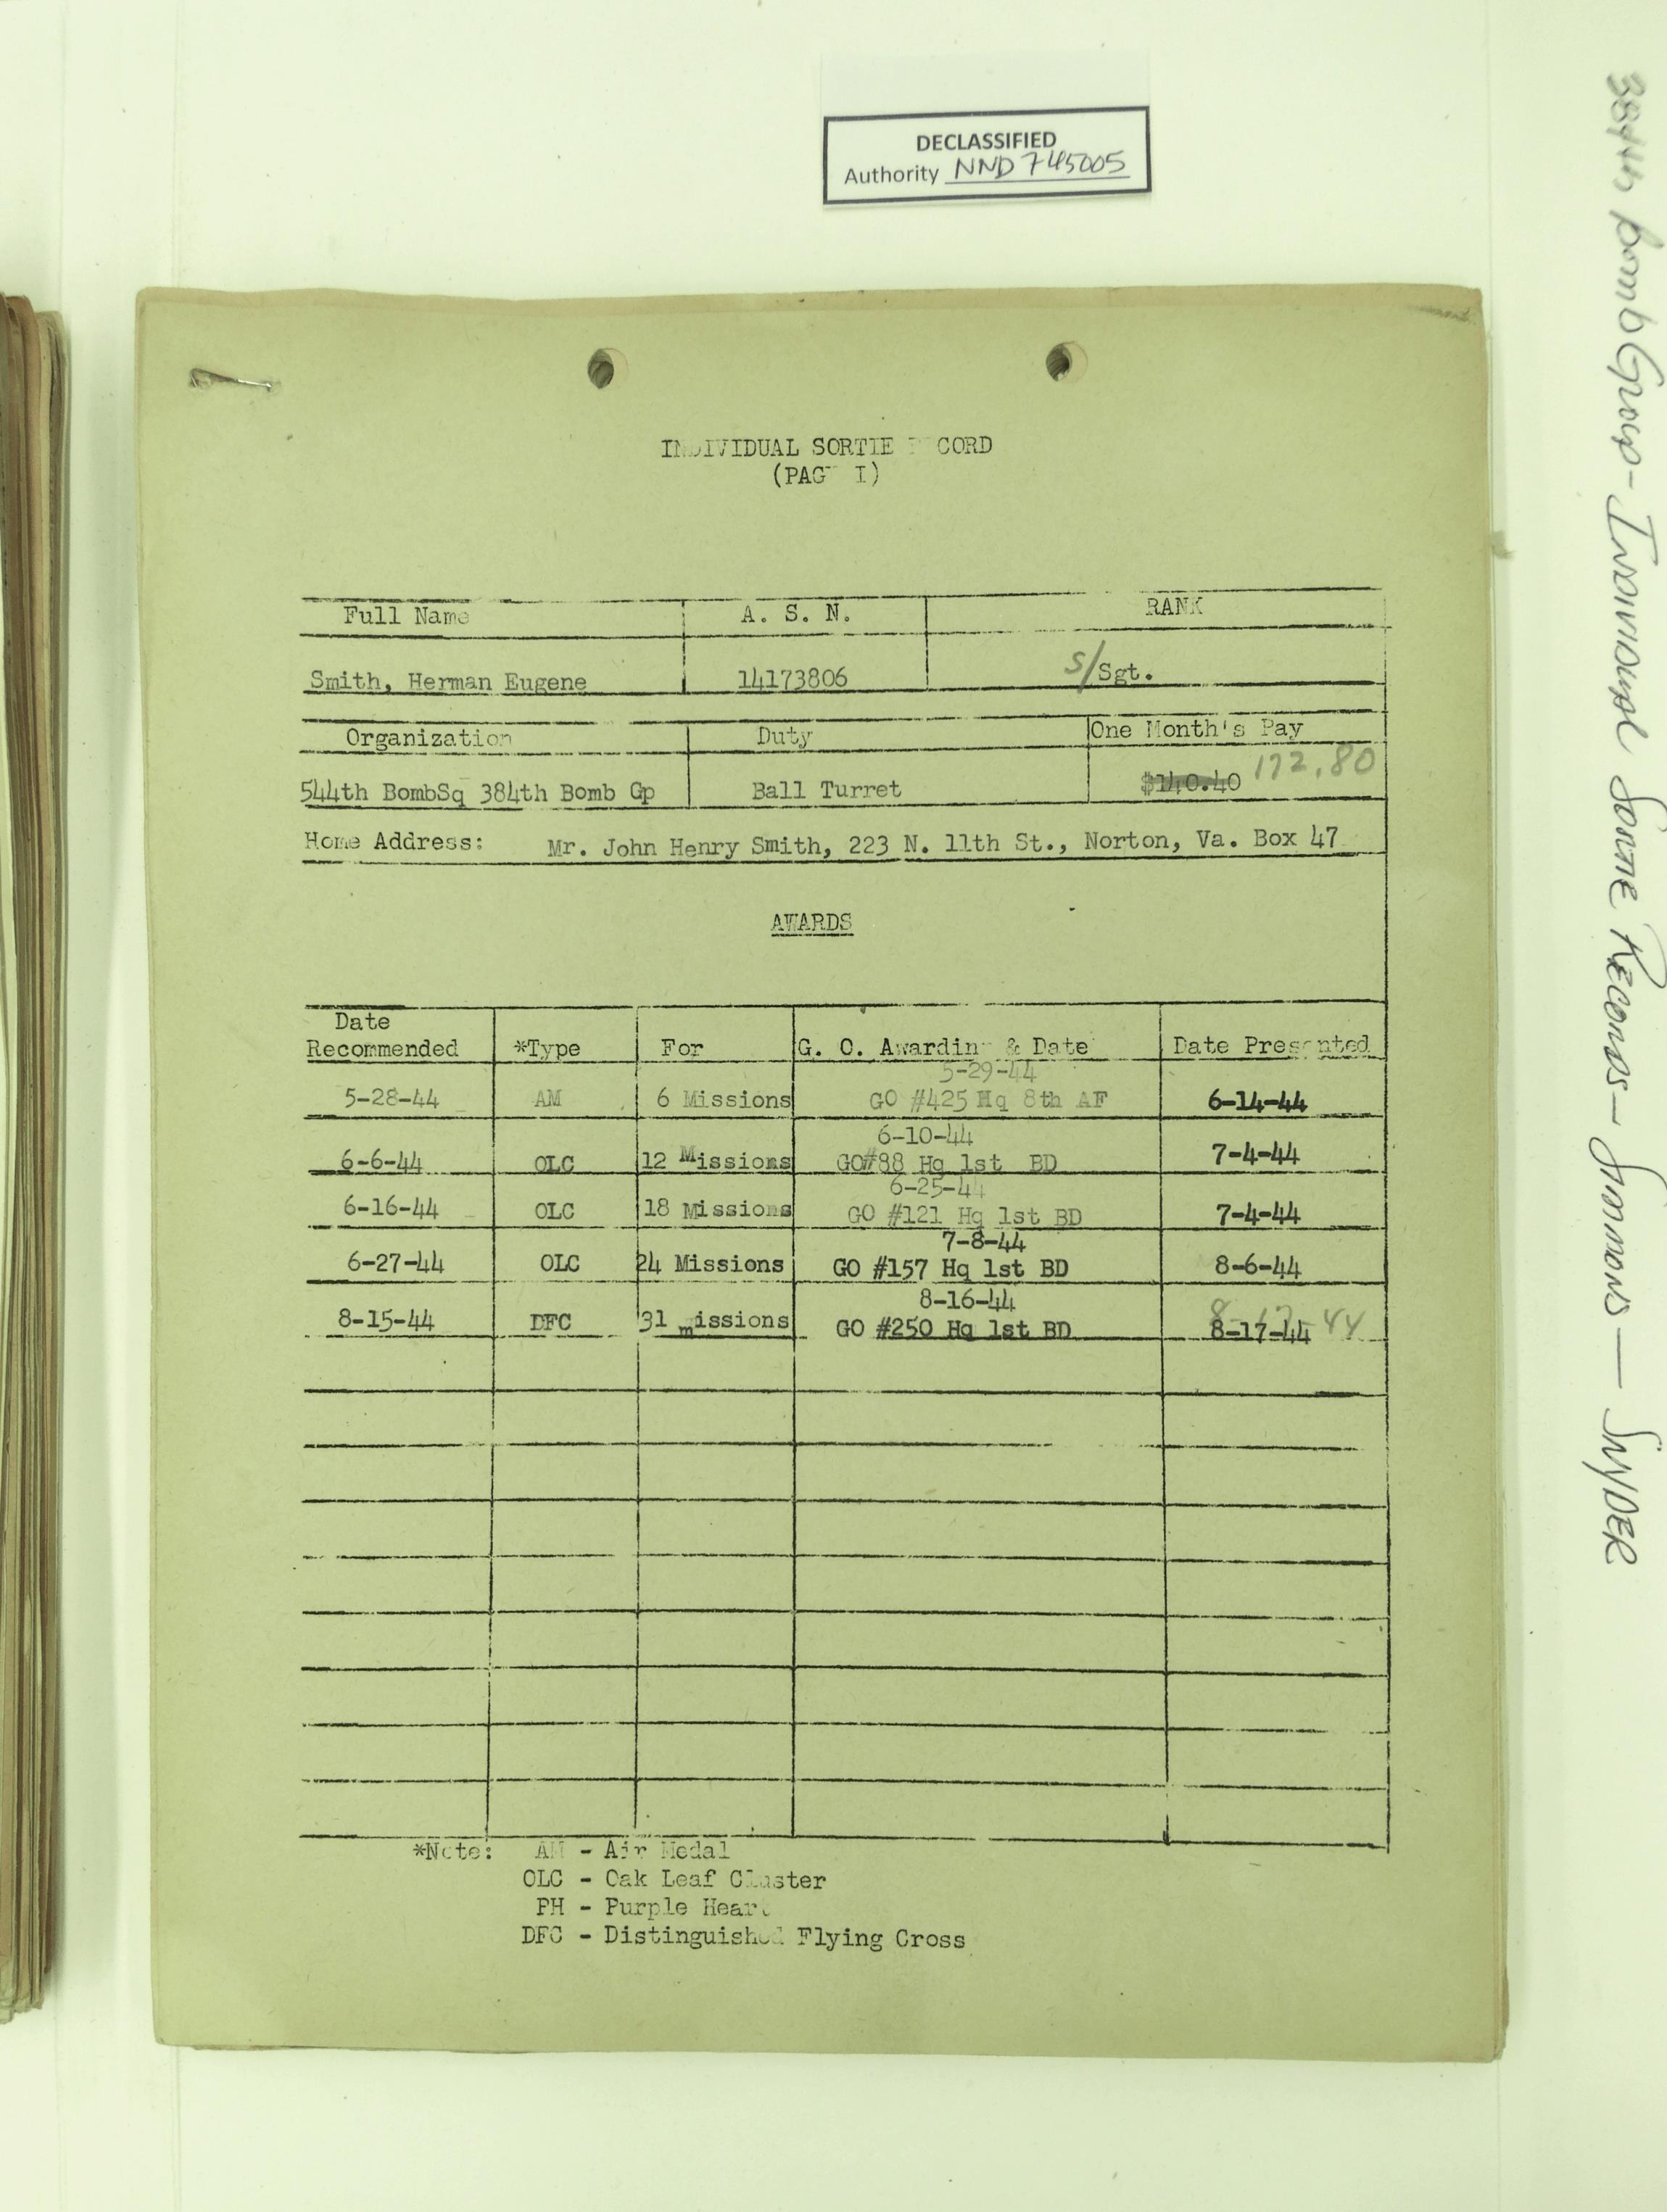 DECLASSIFIED
Authority NND 745005
384th Bomb Group - Individual Sortie Records - Simmons - Snyder
INDIVIDUAL SORTIE RECORD
(PAGE I)
Full Name A. S. N. RANK
Smith, Herman Eugene 14173806 S/Sgt.
Organization Duty One Month's Pay
544th BombSq 384th Bomb Gp Ball Turret $140.40 172.80
Home Address: Mr. John Henry Smith, 223 N. 11th St., Norton, Va. Box 47
AWARDS
Date
Recommended *Type For G. O. Awarding & Date Date Presented
5-29-44
5-28-44 AM 6 Missions GO #425 Hq 8th AF 6-14-44
6-10-44
6-6-44 OLC 12 Missions GO#88 Hq 1st BD 7-4-44
6-25-44
6-16-44 OLC 18 Missions GO #121 Hq 1st BD 7-4-44
7-8-44
6-27-44 OLC 24 Missions GO #157 Hq 1st BD 8-6-44
8-16-44 8-17-44
8-15-44 DFC 31 missions GO #250 Hq 1st BD 8-17-44
*Note: AM - Air Medal
OLC - Oak Leaf Cluster
PH - Purple Heart
DFC - Distinguished Flying Cross